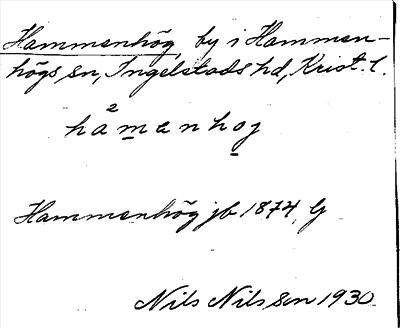 Hammenhög, by i Hammen-
högs sn, Ingelstads hd, Krist. l.
ha²menhoj
Hammenhög jb 1874, G
Nils Nilsson 1930.